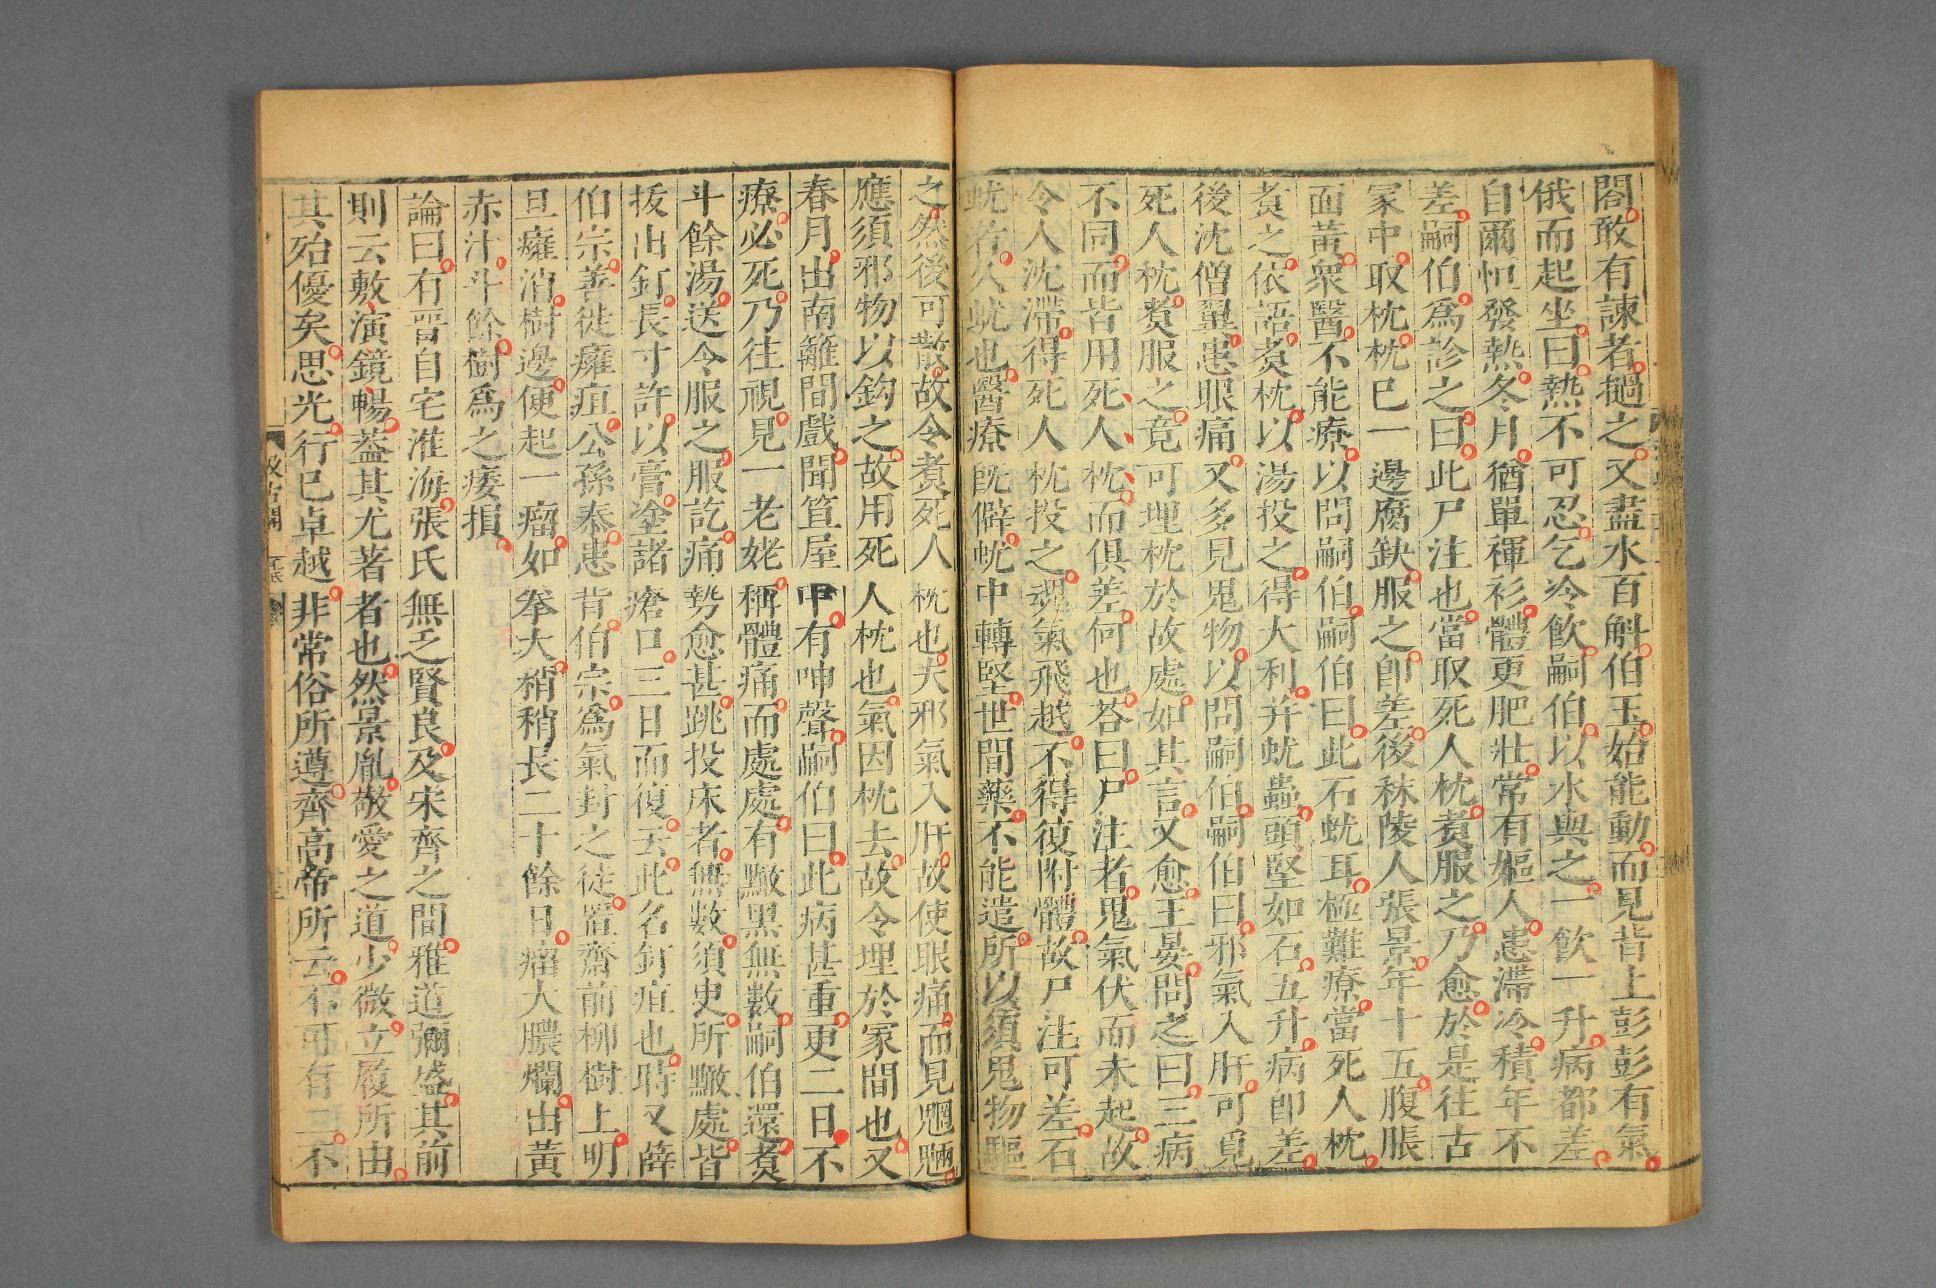 閣敢有諫者撾之又盡水百斛伯玉始能動而見背上彭彭有氣
俄而起坐曰熱不可忍乞冷飲嗣伯以水與之一飲一升病都差
自爾恒發熱冬月猶單褌衫體更肥壯常有嫗人患滯冷積年不
差嗣伯爲診之曰此尸注也當取死人枕煑服之乃愈於是往古
冢中取枕枕巳一邊腐缺服之卽差後秣陵人張景年十五腹脹
面黃衆醫不能療以問嗣伯嗣伯曰此石蚘耳極難療當死人枕
煑之依語煑枕以湯投之得大利并蚘蟲頭堅如石五升病卽差
後沈僧翼患眼痛又多見鬼物以問嗣伯嗣伯曰邪氣入肝可覓
死人枕煑服之竟可埋枕於故處如其言又愈王晏問之曰三病
不同而皆用死人枕而俱差何也荅曰尸注者鬼氣伏而未起故
令人沈滯得死人枕投之魂氣飛越不得復附體故尸注可差石
蚘者久蚘也醫療旣僻蚘中轉堅世間藥不能遣所以須鬼物驅
之然後可散故令煑死人枕也夫邪氣入肝故使眼痛而見魍魎
應須邪物以鈎之故用死人枕也氣因枕去故令埋於冢間也又
春月出南籬間戲聞笪屋中有呻聲嗣伯曰此病甚重更二日不
療必死乃往視見一老姥稱體痛而處處有𪒠黑無數嗣伯還煑
斗餘湯送令服之服訖痛勢愈甚跳投床者無數須臾所𪒠處皆
拔出釘長寸許以膏塗諸瘡口三日而復云此名釘疽也時又薛
伯宗善徙癰疽公孫泰患背伯宗爲氣封之徙置齋前柳樹上明
旦癰消樹邊便起一瘤如拳大稍稍長二十餘日瘤大膿爛出黃
赤汁斗餘樹爲之痿損
論曰有晉自宅淮海張氏無乏賢良及宋齊之間雅道彌盛其前
則云敷演鏡暢葢其尤著者也然景胤敬愛之道少微立履所由
其殆優矣思光行巳卓越非常俗所遵齊高帝所云不可有二不